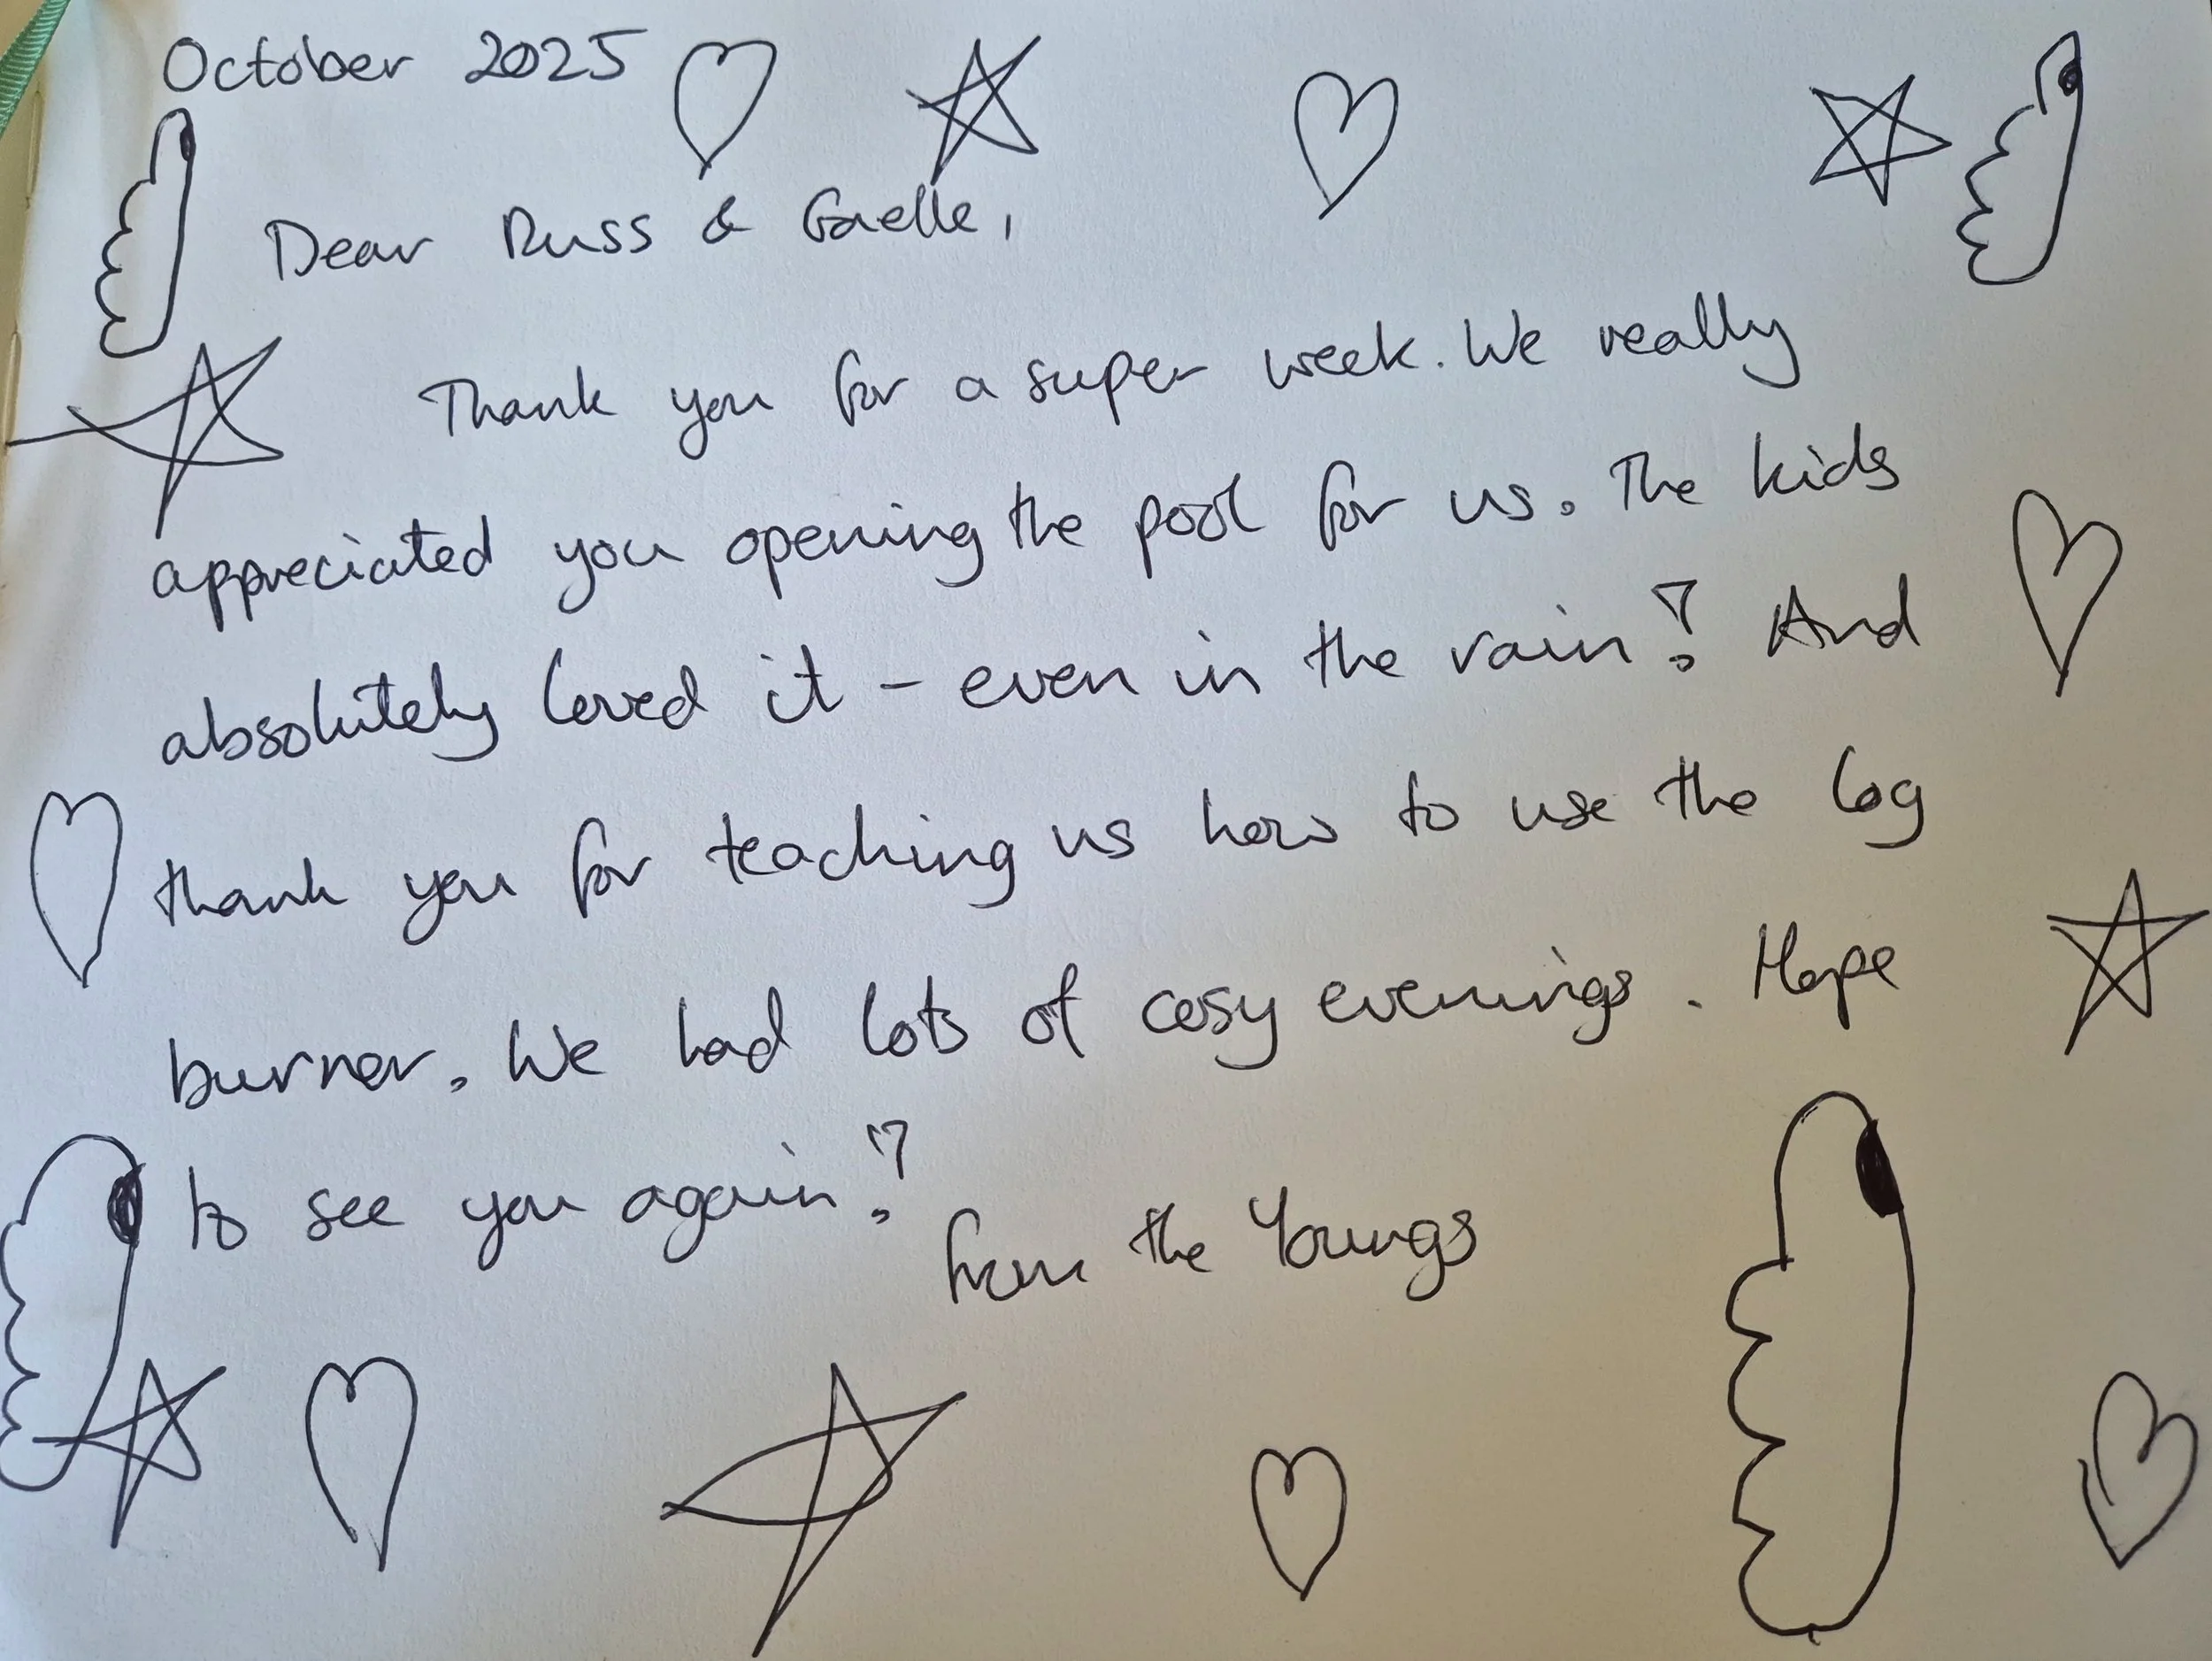 October 2025
Dear Russ & Gaelle,
Thank you for a super week. We really
appreciated you opening the pool for us. The kids
absolutely loved it - even in the rain! And
thank you for teaching us how to use the log
burner. We had lots of cosy evenings. Hope
to see you again!
from the Youngs